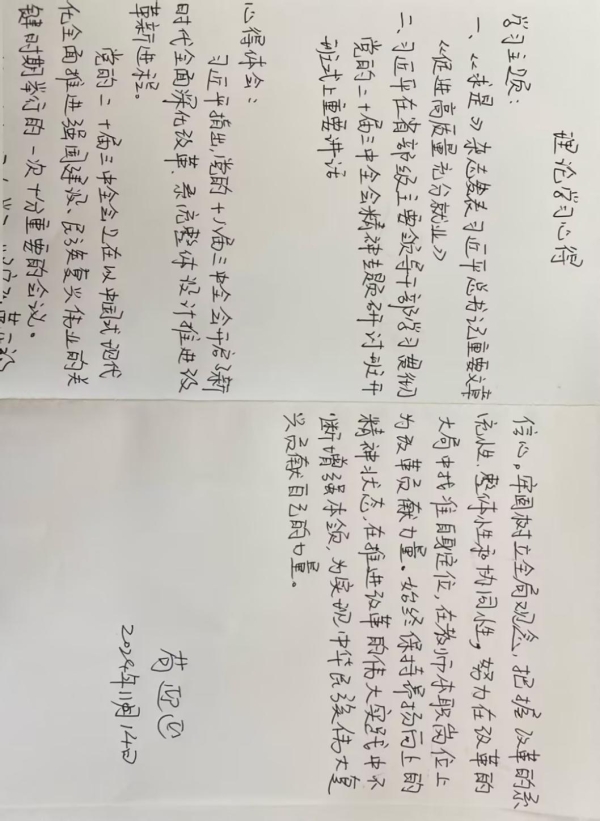 理论学习心得
学习主题：
一、《求是》杂志发表习近平总书记重要文章
《促进高质量充分就业》
二、习近平在省部级主要领导干部学习贯彻
党的二十届三中全会精神专题研讨班开
班式上重要讲话
心得体会：
习近平指出，党的十八届三中全会开启了新
时代全面深化改革、系统整体设计推进改
革新进程。
党的二十届三中全会又在以中国式现代
化全面推进强国建设、民族复兴伟业的关
键时期举行的一次十分重要的会议。
信心。牢固树立全局观念，把握改革的系
统性、整体性和协同性，努力在改革的
大局中找准自身定位，在教师本职岗位上
为改革贡献力量。始终保持昂扬向上的
精神状态，在推进改革的伟大实践中不
断增强本领，为实现中华民族伟大复
兴贡献自己的力量。
2024年11月14日